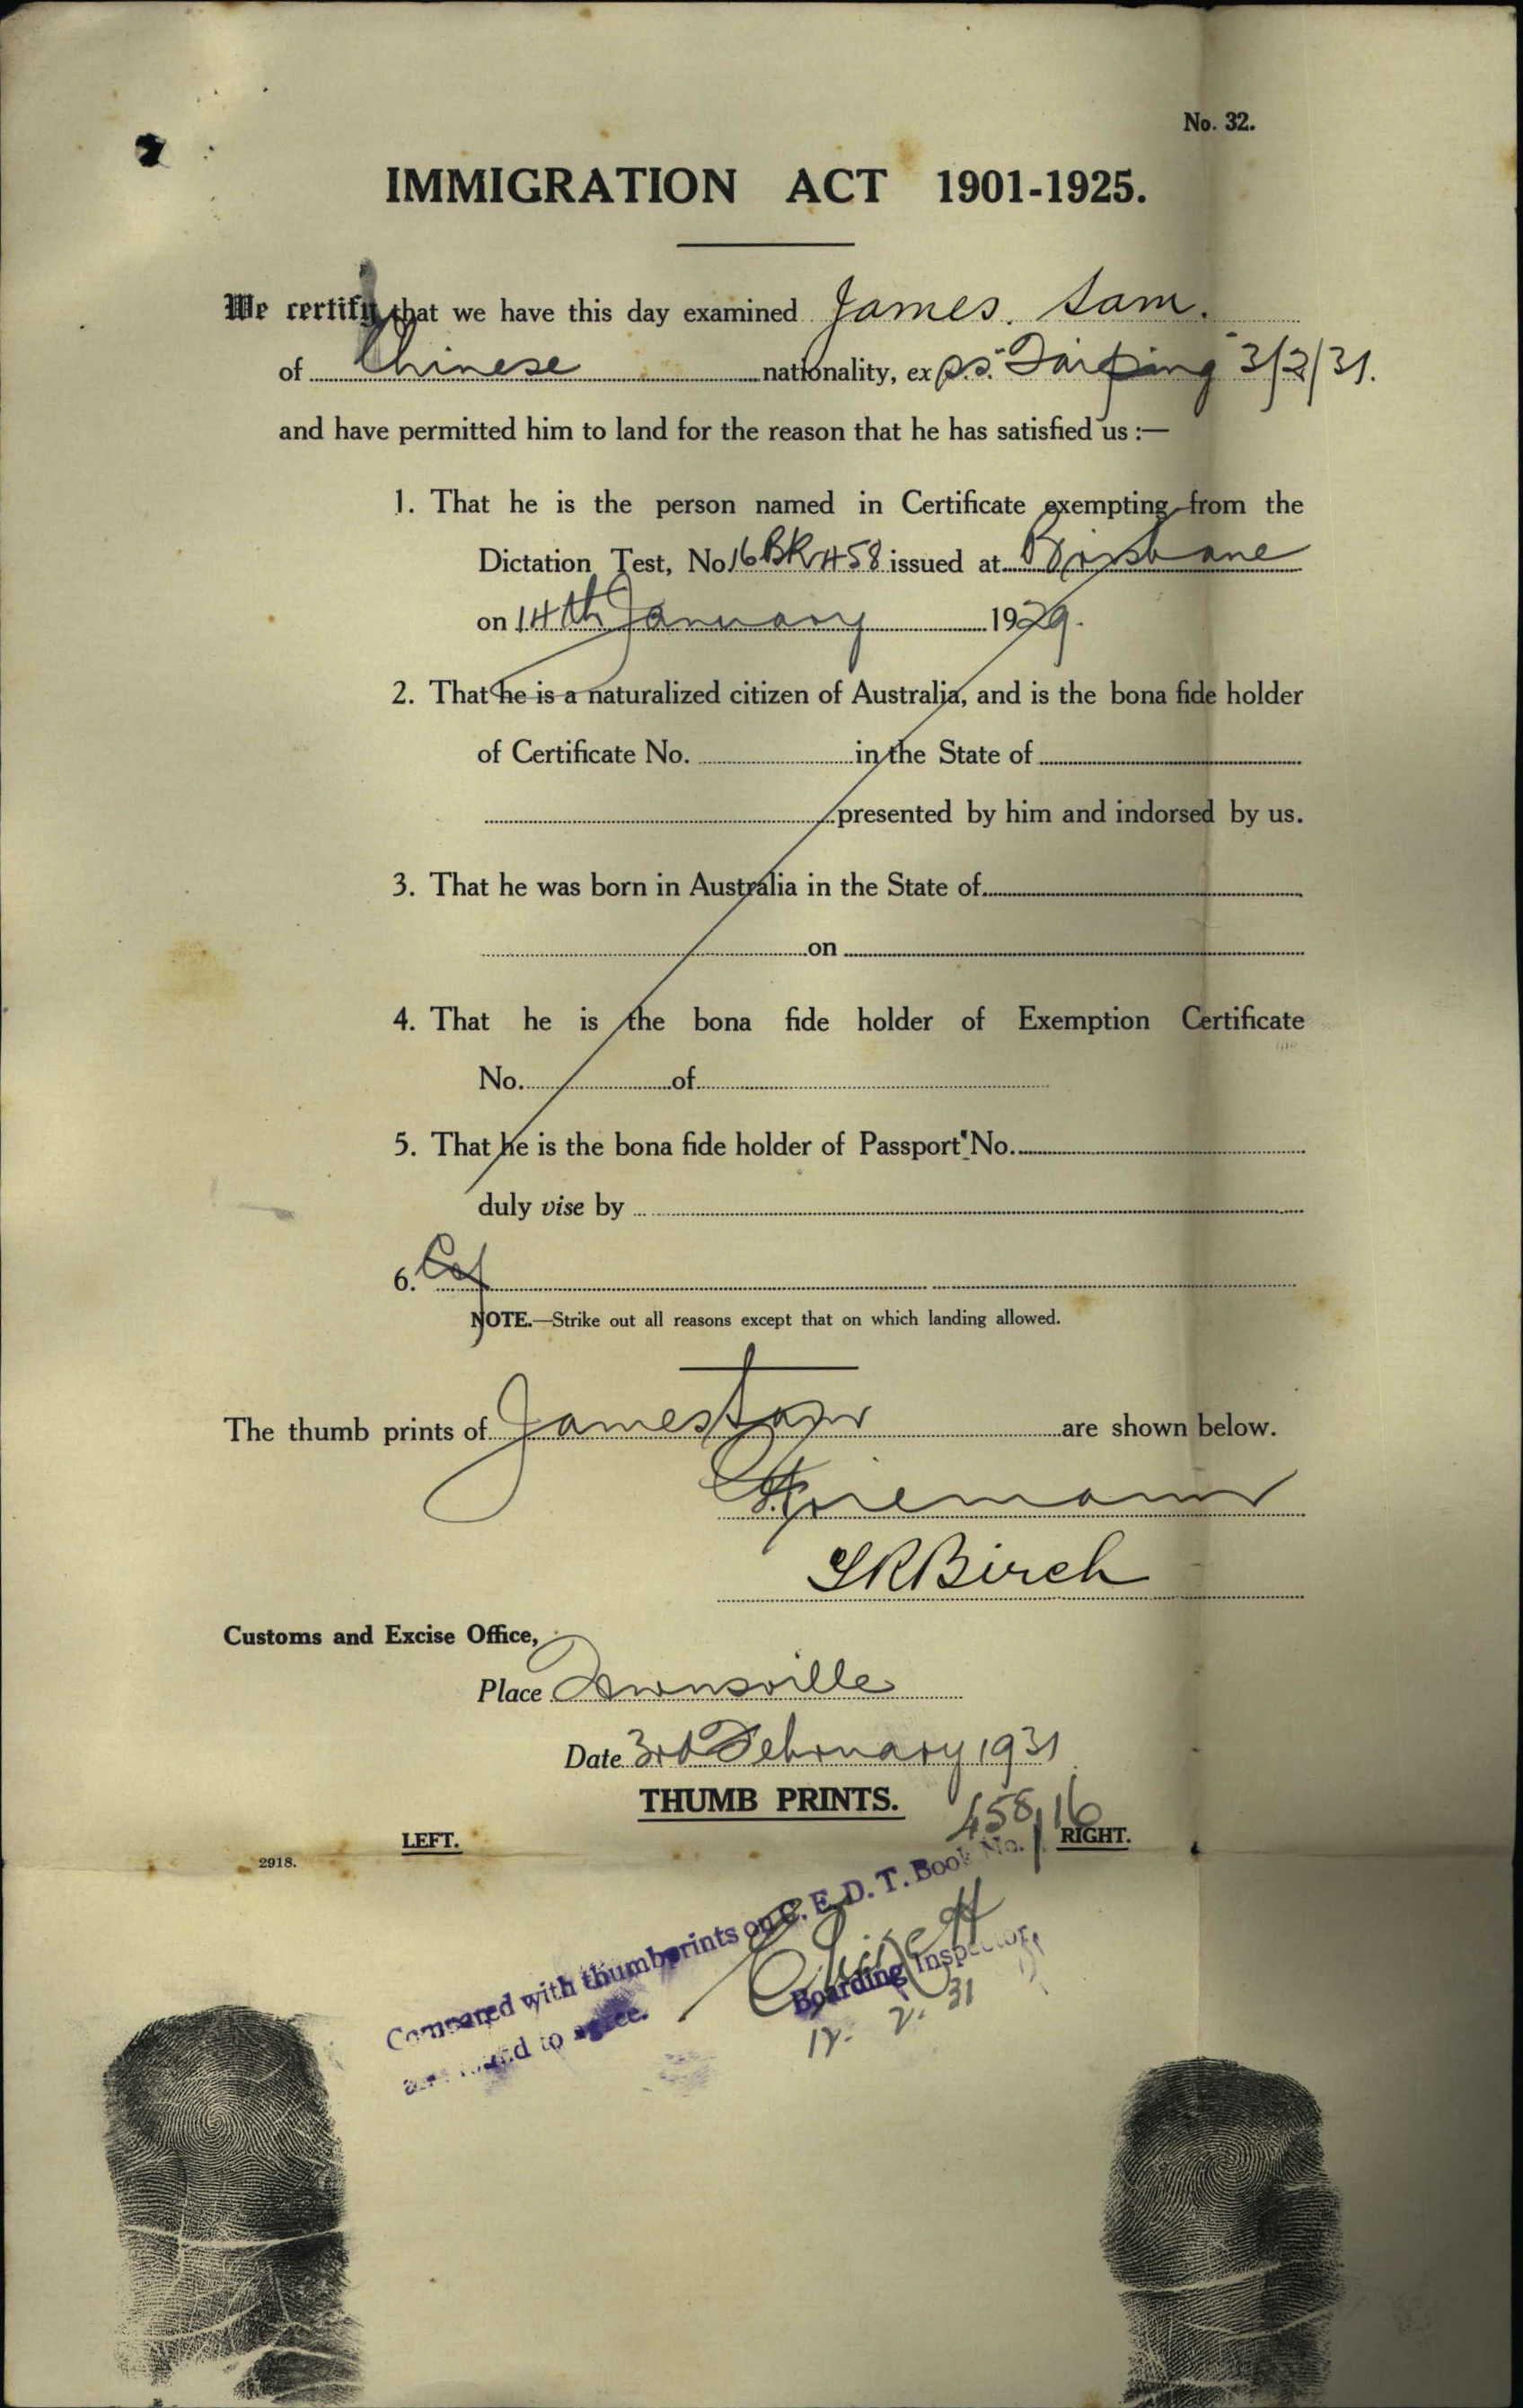 No. 32.
IMMIGRATION ACT 1901-1925.
We certify that we have this day examined James. Sam.
of Chinese nationality, ex s.s. "Taiping" 3/2/31.
and have permitted him to land for the reason that he has satisfied us :—
1. That he is the person named in Certificate exempting from the
Dictation Test, No 16 BK 458 issued at Brisbane
on 14th January 1929.
2. That he is a naturalized citizen of Australia, and is the bona fide holder
of Certificate No. in the State of
presented by him and indorsed by us.
3. That he was born in Australia in the State of
on
4. That he is the bona fide holder of Exemption Certificate
No. of
5. That he is the bona fide holder of Passport No.
duly vise by
6.
NOTE.—Strike out all reasons except that on which landing allowed.
The thumb prints of James Sam are shown below.
Birch
Customs and Excise Office,
Place Townsville
Date 3rd February 1931
THUMB PRINTS.
458/16
LEFT. RIGHT.
2918.
Compared with thumbprints on C. E. D. T. Book No.
and found to agree.
Boarding Inspector.
2. 31